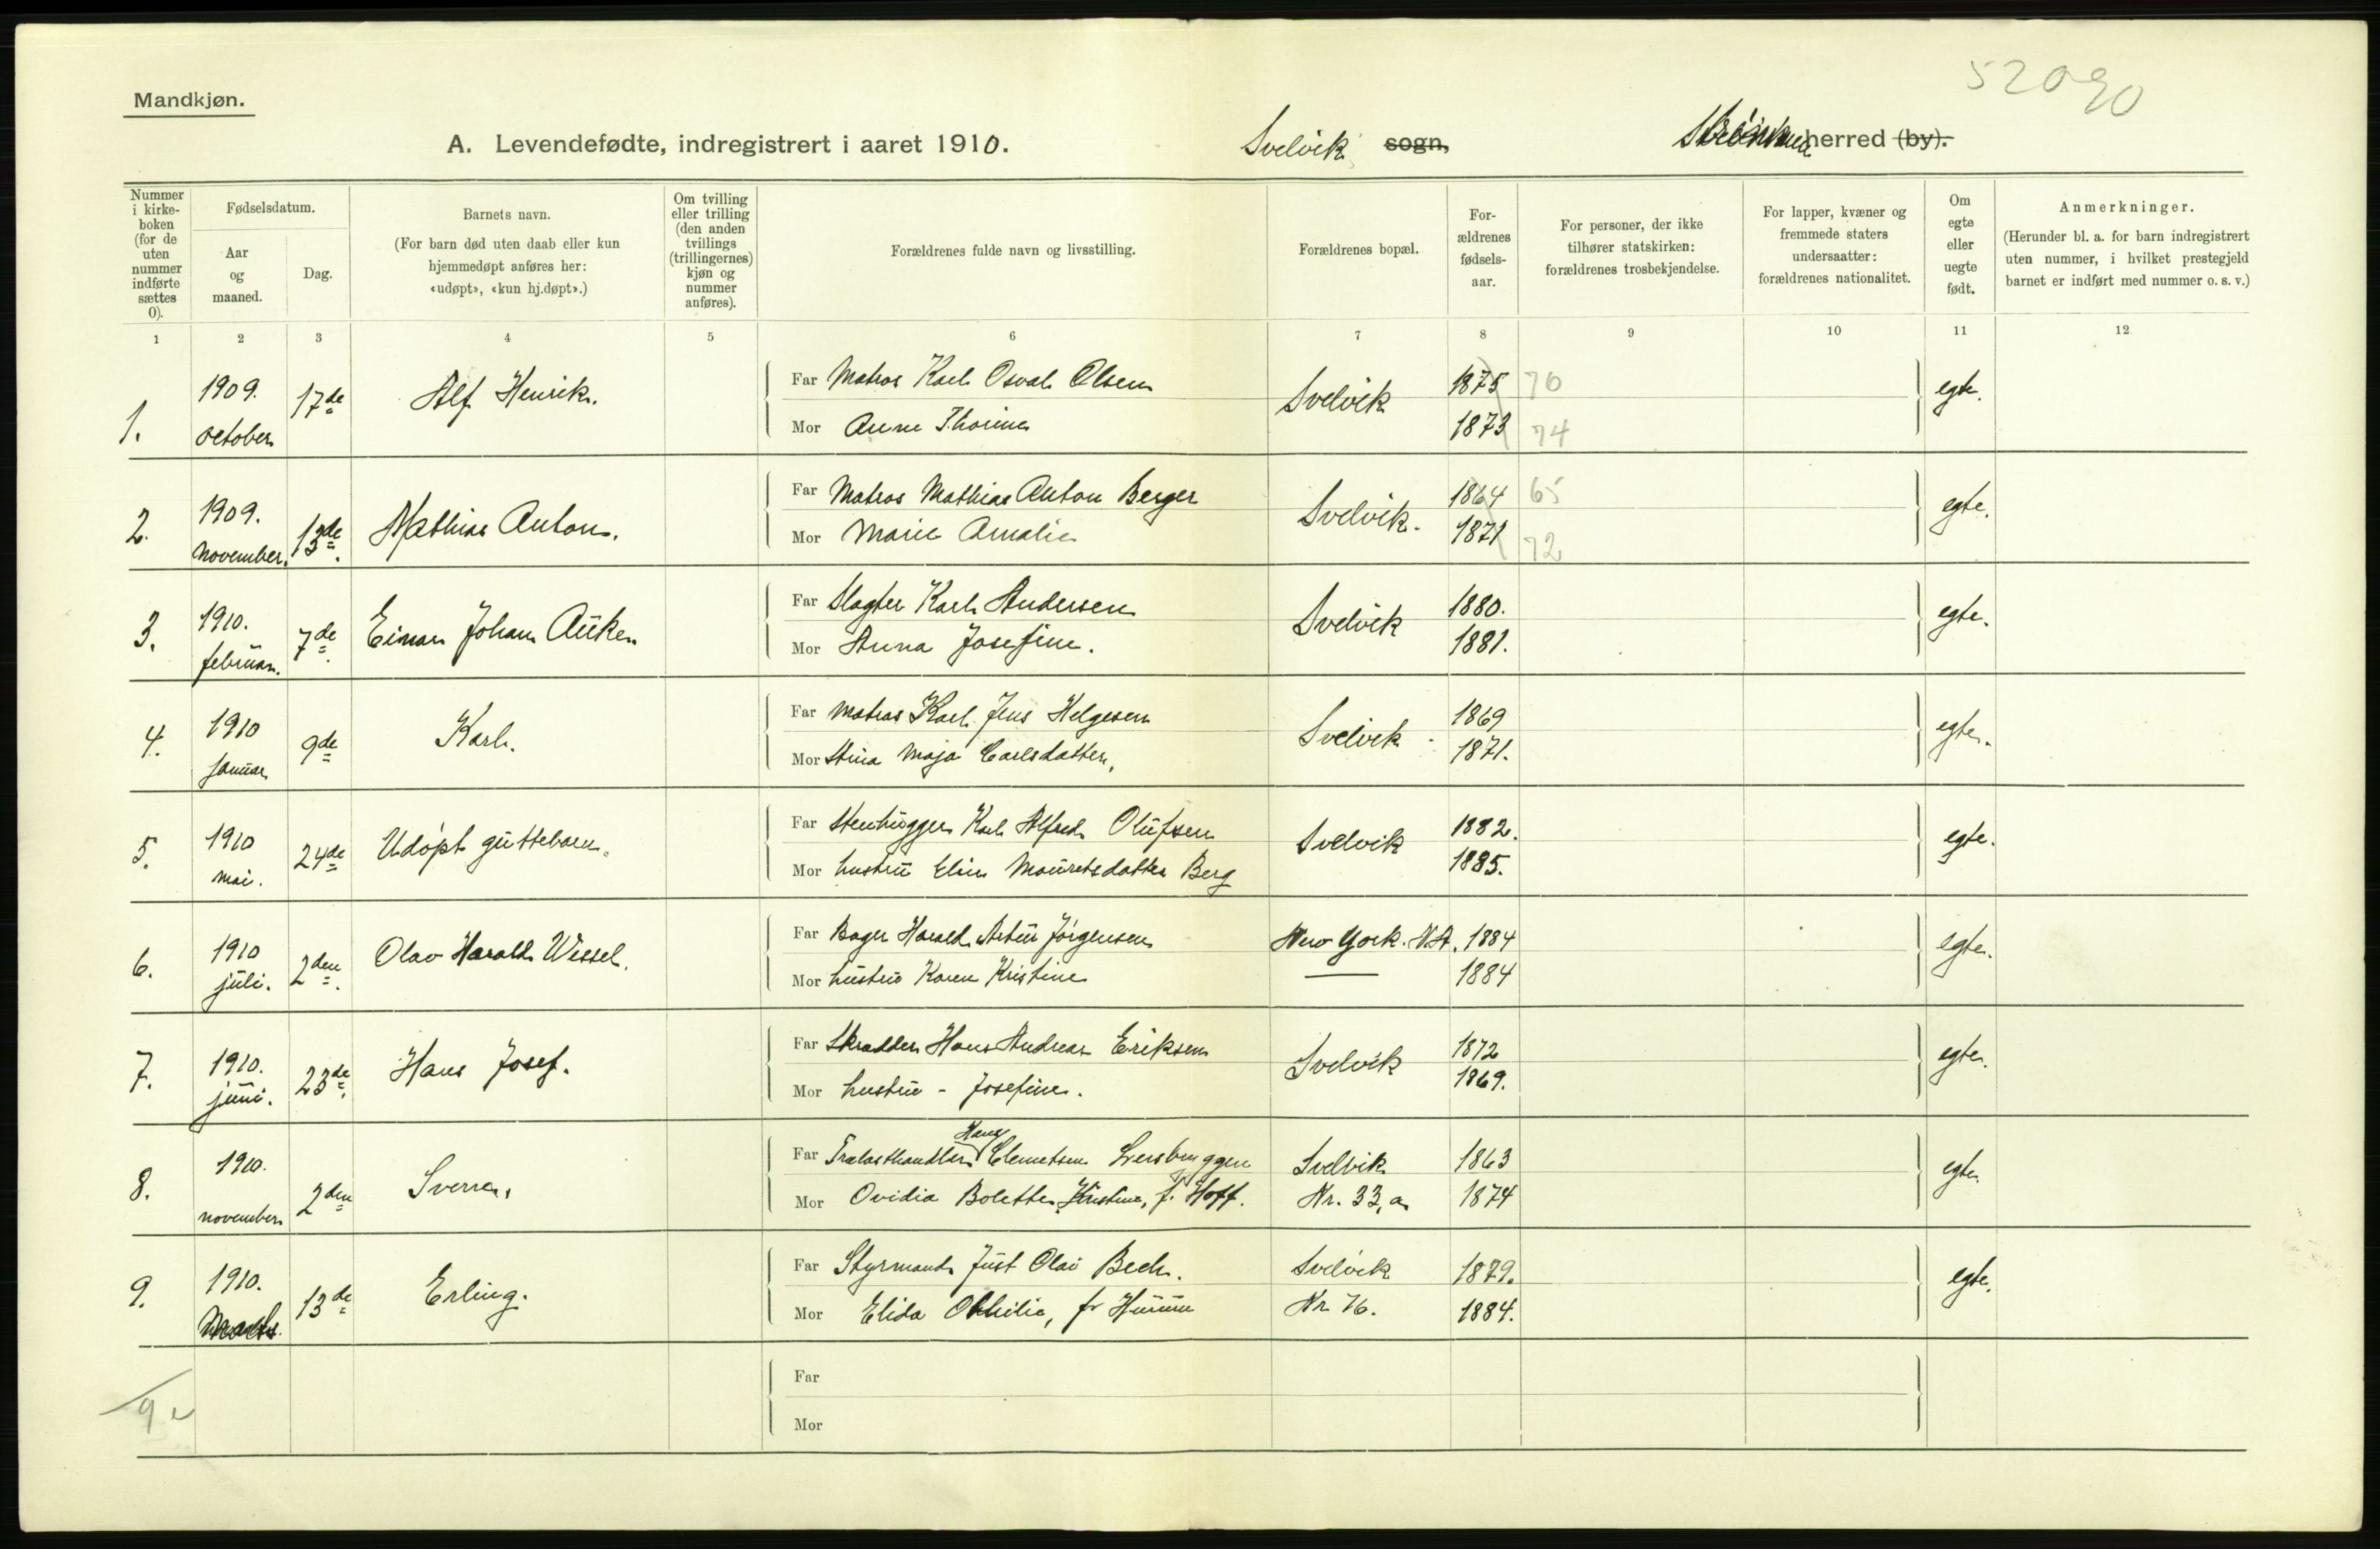 52090
Mandkjøn.
A. Levendefødte, indregistrert i aaret 1910. Svelvik sogn, herred (by).
Nummer i kirke-boken (for de uten nummer indførte sættes 0).
Fødselsdatum.
Aar og maaned.
Dag.
Barnets navn.
(For barn død uten daab eller kun hjemmedøpt anføres her: «udøpt», «kun hj.døpt».)
Om tvilling eller trilling (den anden tvillings (trillingernes) kjøn og nummer anføres).
Forældrenes fulde navn og livsstilling.
Forældrenes bopæl.
For-ældrenes fødsels-aar.
For personer, der ikke tilhører statskirken: forældrenes trosbekjendelse.
For lapper, kvæner og fremmede staters undersaatter: forældrenes nationalitet.
Om egte eller uegte født.
Anmerkninger.
(Herunder bl. a. for barn indregistrert uten nummer, i hvilket prestegjeld barnet er indført med nummer o. s. v.)
1 2 3 4 5 6 7 8 9 10 11 12
1. 1909. october 17de Alf Henrik.
Far Matros Karl Osvald Olsen Svelvik 1875 70 egte.
Mor Anne Thorine 1873 74
2. 1909. november. 13de. Mathias Anton.
Far Matros Mathias Anton Berger Svelvik. 1864 65 egte.
Mor Marie Amalie 1871 72
3. 1910. februar. 7de. Einar Johan Auken
Far Slagter Karl Andersen Svelvik 1880. egte.
Mor Anna Josefine. 1881.
4. 1910 januar 9de Karl.
Far Matros Karl Jens Helgesen Svelvik 1869 egte.
Mor Stina Maja Carlsdatter. 1871.
5. 1910 mai. 24de Udøpt guttebarn.
Far Stenhugger Karl Alfred Olufsen Svelvik 1882. egte.
Mor hustru Elin Mouretsdatter Berg 1885.
6. 1910 juli. 2den. Olav Harald Wessel.
Far Bager Harald Artur Jørgensen New York. N.A. 1884 egte.
Mor hustru Karen Kristine — 1884
7. 1910. juni. 23de. Hans Josef.
Far Skrædder Hans Andreas Eriksen Svelvik 1872 egte.
Mor hustru - Josefine. 1869.
8. 1910. november 2den Sverre.
Far Trælasthandler Hans Clemetsen Sversbruggen Svelvik 1863 egte.
Mor Ovidia Bolette Kristine, f. Hoff. Nr. 33, a. 1874
9. 1910. Marts. 13de Erling.
Far Styrmand Just Olav Bech. Svelvik 1879. egte.
Mor Elida Othilie, f. Nr. 76. 1884.
Far
9
Mor